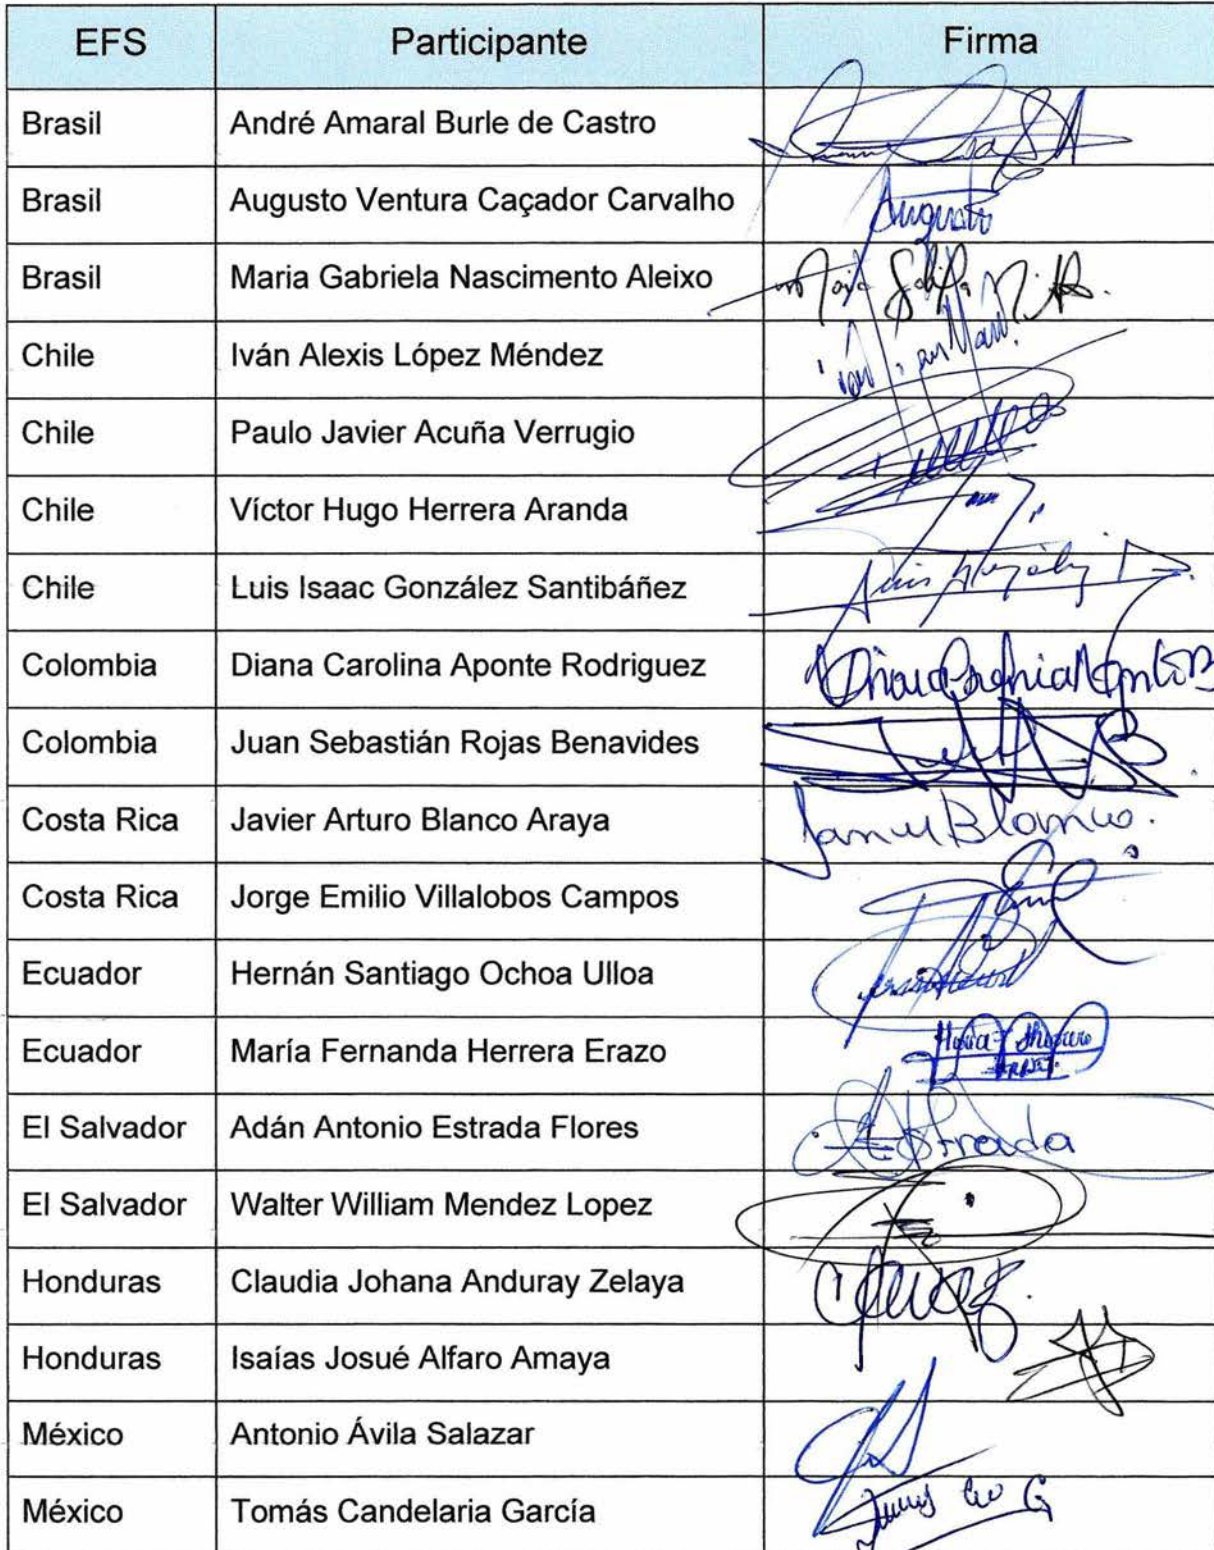 EFS Participante Firma
Brasil André Amaral Burle de Castro
Brasil Augusto Ventura Caçador Carvalho Augusto
Brasil Maria Gabriela Nascimento Aleixo
Chile Iván Alexis López Méndez
Chile Paulo Javier Acuña Verrugio
Chile Víctor Hugo Herrera Aranda
Chile Luis Isaac González Santibáñez Luis
Colombia Diana Carolina Aponte Rodriguez
Colombia Juan Sebastián Rojas Benavides
Costa Rica Javier Arturo Blanco Araya Blanco
Costa Rica Jorge Emilio Villalobos Campos
Ecuador Hernán Santiago Ochoa Ulloa
Ecuador María Fernanda Herrera Erazo
El Salvador Adán Antonio Estrada Flores Estrada
El Salvador Walter William Mendez Lopez
Honduras Claudia Johana Anduray Zelaya
Honduras Isaías Josué Alfaro Amaya
México Antonio Ávila Salazar
México Tomás Candelaria García